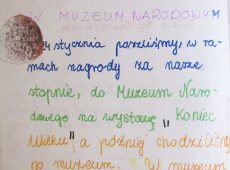 W MUZEUM NARODOWYM
24 stycznia poszliśmy, w ra-
mach nagrody za nasze
stopnie, do Muzeum Naro-
dowego na wystawę "Koniec
Wieku", a późnię chodziliśmy
po muzeum. W muzeum